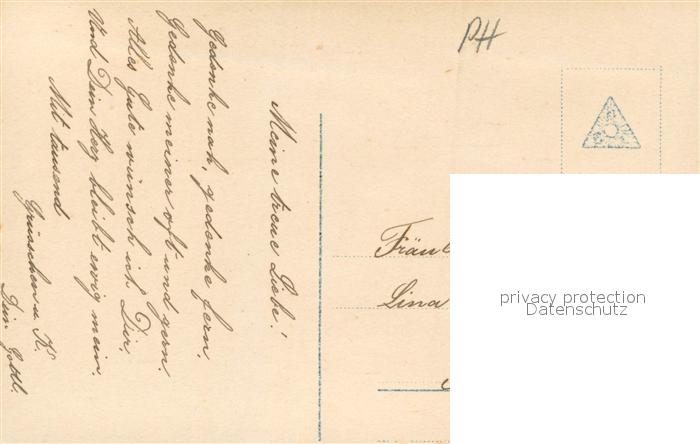 Meine treue Liebe!
Gedenke nah, gedenke fern.
Gedenke meiner oft und gern.
Alles Gute wünsch ich Dir,
Und Dein Herz bleibt ewig mein.
Mit tausend
Grüsschen u. K.
Dein Gottl.
PH
Fräul
Lina
privacy protection
Datenschutz